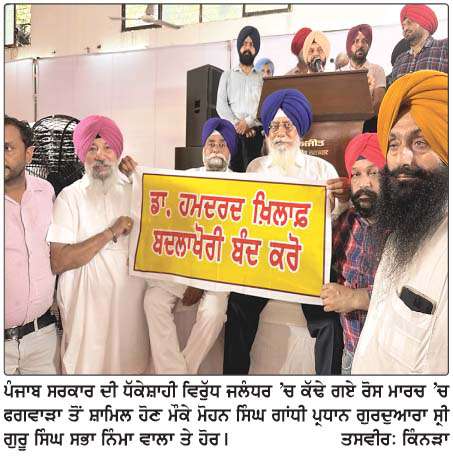 ਡਾ. ਹਮਦਰਦ ਖ਼ਿਲਾਫ਼
ਬਦਲਾਖੋਰੀ ਬੰਦ ਕਰੋ
ਪੰਜਾਬ ਸਰਕਾਰ ਦੀ ਧੱਕੇਸ਼ਾਹੀ ਵਿਰੁੱਧ ਜਲੰਧਰ ’ਚ ਕੱਢੇ ਗਏ ਰੋਸ ਮਾਰਚ ’ਚ
ਫਗਵਾੜਾ ਤੋਂ ਸ਼ਾਮਿਲ ਹੋਣ ਮੌਕੇ ਮੋਹਨ ਸਿੰਘ ਗਾਂਧੀ ਪ੍ਰਧਾਨ ਗੁਰਦੁਆਰਾ ਸ੍ਰੀ
ਗੁਰੂ ਸਿੰਘ ਸਭਾ ਨਿੰਮਾ ਵਾਲਾ ਤੇ ਹੋਰ। ਤਸਵੀਰ: ਕਿੰਨੜਾ